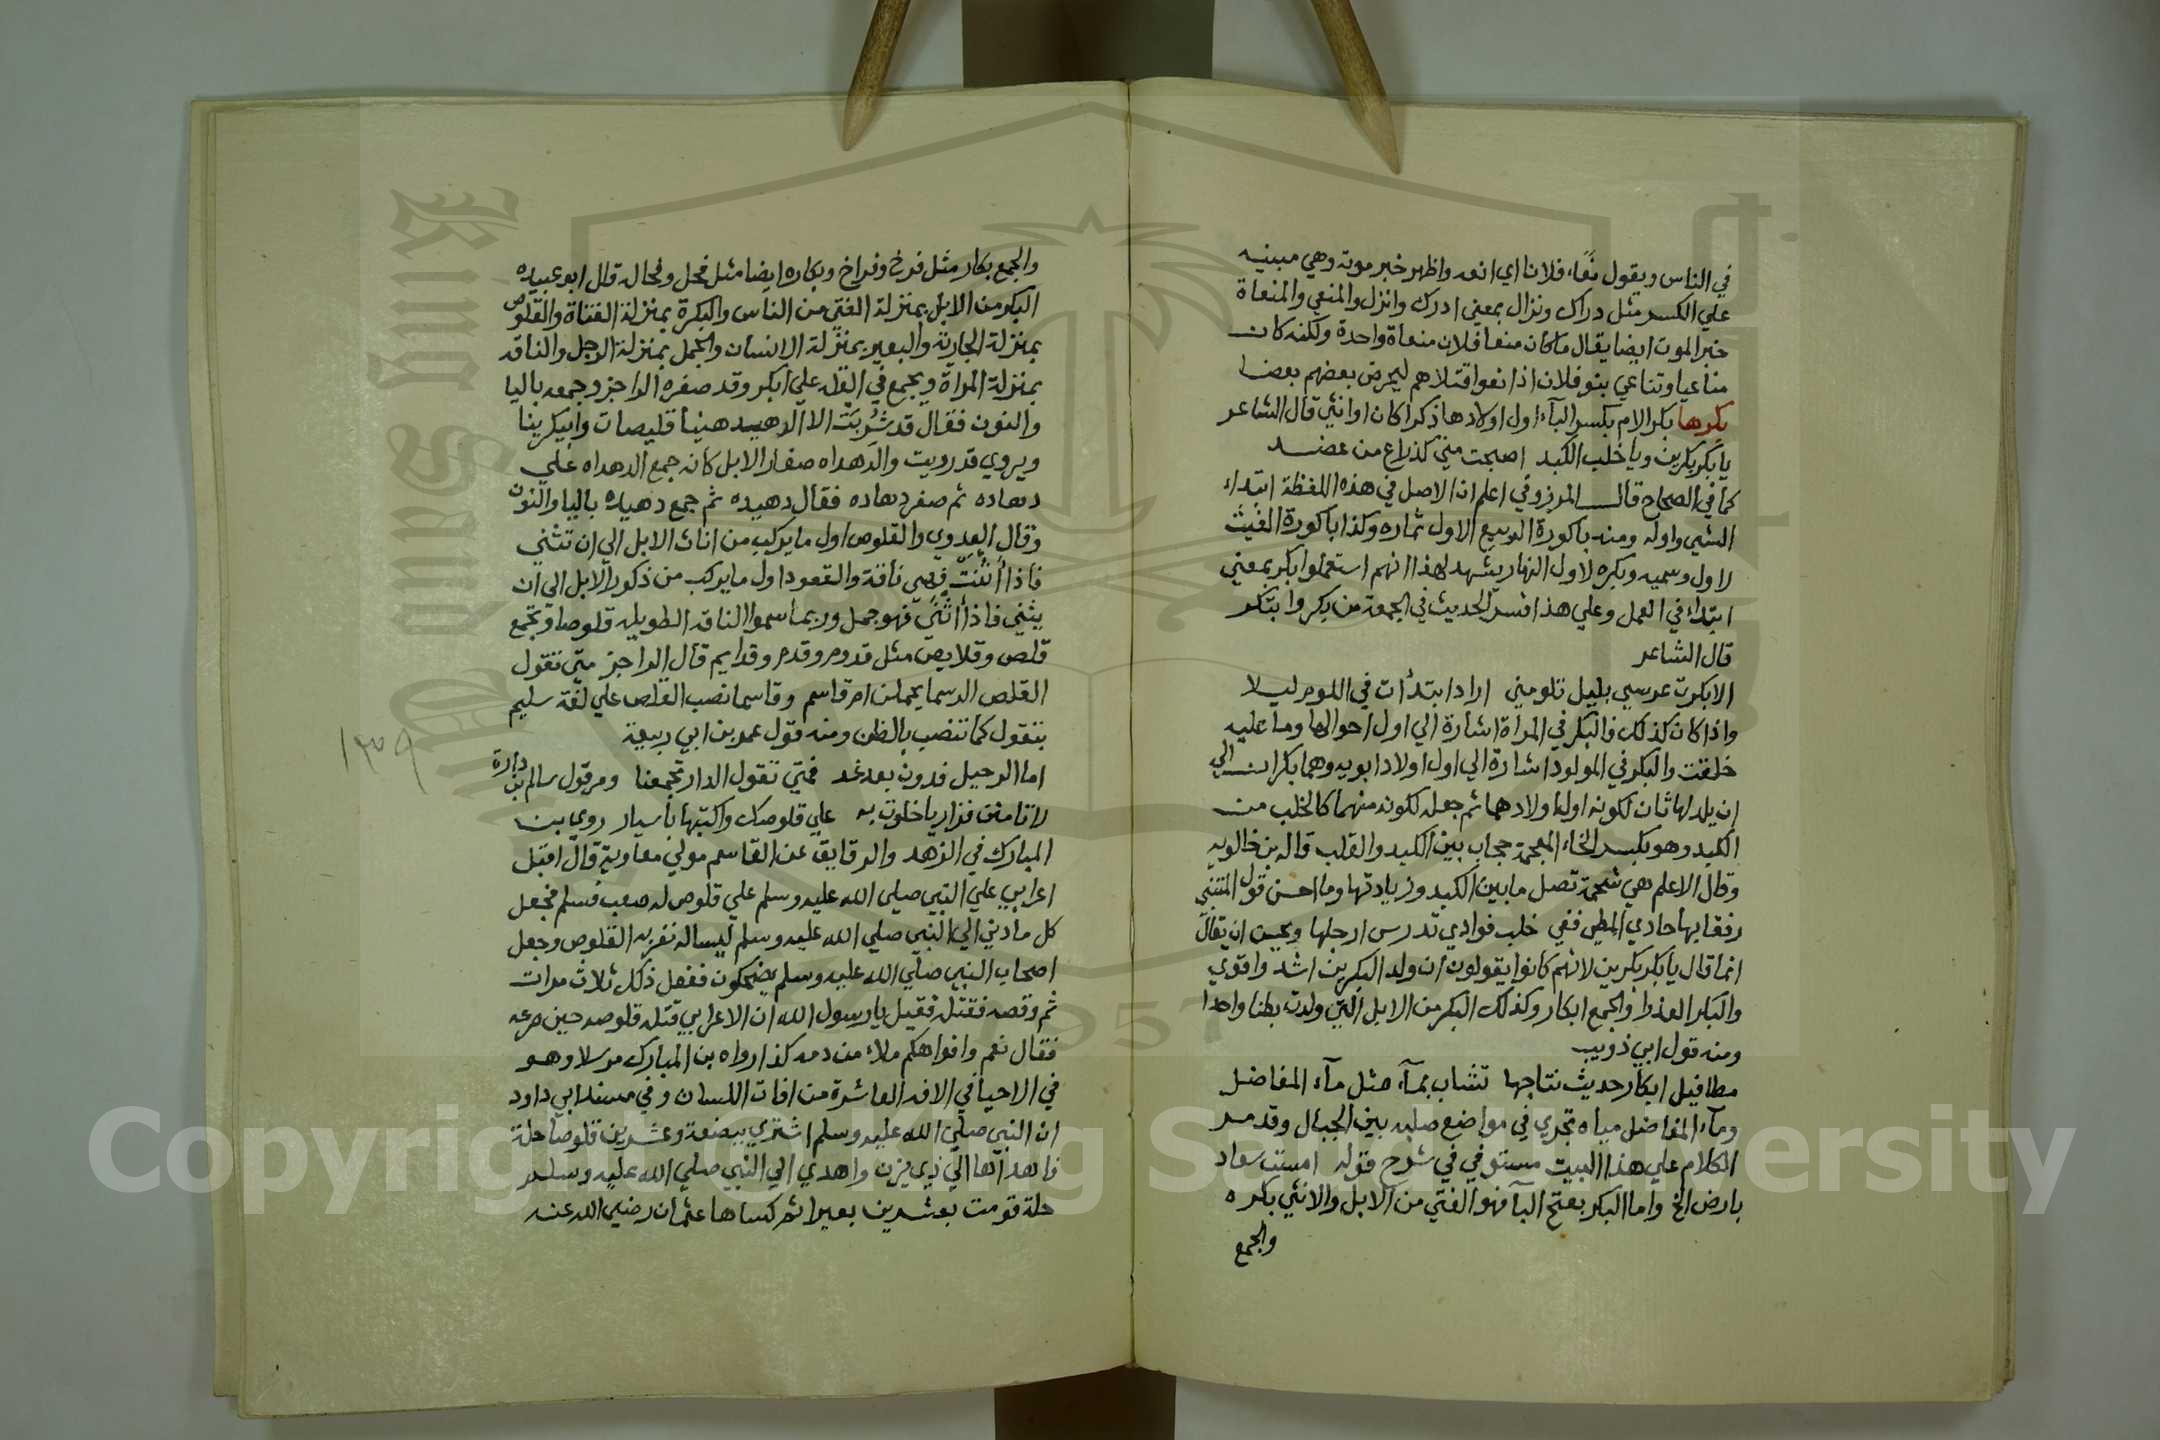 في الناس ويقول نعاء فلانا اي انعه واظهر خبر موته وهي مبنيه
علي الكسر مثل دراك ونزال بمعني ادرك وانزل والمنعي والمنعاة
خبر الموت ايضا يقال ماكان منعا فلان منعاة واحدة ولكنه كان
مناعيا وتناعي بنو فلان اذا نعوا قتلاهم ليحرض بعضهم بعضا
بكرها بكر الام بكسر الباء اول اولادها ذكرا كان او انثي قال الشاعر
يا بكر بكرين ويا خلب الكبد اصبحت مني كذراع من عضد
كما في الصحاح قال المرزوقي اعلم ان الاصل في هذه اللفظة ابتداء
الشي واوله ومنه باكورة الربيع الاول ثماره وكذا باكورة الغيث
لاول وسميه وبكره لاول النهار يشهد لهذا انهم استعملوا بكر بمعني
ابتداء في العمل وعلي هذا فسر الحديث في الجمعة من بكر وابتكر
قال الشاعر
الا بكرت عرسي بليل تلومني اراد ابتدأت في اللوم ليلا
واذا كان كذلك فالبكر في المراة اشارة الي اول احوالها وما عليه
خلقت والبكر في المولود اشارة الي اول اولاد ابويه وهما بكران الي
ان يلد لها ثان لكونه اول اولادهما ثم جعله لكونه منهما كالخلب من
الكبد وهو بكسر الخاء المعجمة حجاب بين الكبد والقلب قاله بن خالويه
وقال الاعلم هي شحمة تصل ما بين الكبد وزيادتها وما احسن قول المتنبي
رفقا بها حادي المطي ففي خلب فوادي تدرس ارجلها ويحسن ان يقال
انما قال يا بكر بكرين لانهم كانوا يقولون ان ولد البكرين اشد واقوي
والبكر العذرا والجمع ابكار وكذلك البكر من الابل التي ولدت بطنا واحدا
ومنه قول ابي ذويب
مطافيل ابكار حديث نتاجها تشاب بماء مثل ماء المفاصل
وماء المفاصل مياه تجري في مواضع صلبه بين الجبال وقد مر
الكلام علي هذا البيت مستوفي في شرح قوله امست سعاد
بارض الخ واما البكر بفتح البا فهو الفتي من الابل والانثي بكره
والجمع
والجمع بكار مثل فرخ وفراخ وبكاره ايضا مثل فحل وفحاله قال ابو عبيده
البكر من الابل بمنزلة الفتي من الناس والبكرة بمنزلة الفتاة والقلوص
بمنزلة الجارية والبعير بمنزلة الانسان والجمل بمنزلة الرجل والناقه
بمنزلة المراة ويجمع في القله علي ابكر وقد صغره الراجز وجمعه باليا
والنون فقال قد شربت الا الدهيدهينا قليصات وابيكرينا
ويروي قد رويت والدهداه صغار الابل كانه جمع الدهداه علي
دهاده ثم صغر دهاده فقال دهيده ثم جمع دهيده باليا والنون
وقال العدوي والقلوص اول ما يركب من اناث الابل الي ان تثني
فاذا أثنت فهي ناقة والقعود اول ما يركب من ذكور الابل الي ان
يثني فاذا اثني فهو جمل وربما سموا الناقه الطويله قلوصا وتجمع
قلص وقلايص مثل قدوم وقدم وقدايم قال الراجز متي تقول
القلص الرسما يحملن ام قاسم وقاسما نصب القلص علي لغة سليم
بتقول كما تنصب بالظن ومنه قول عمر بن ابي ربيعة
اما الرحيل فدون بعد غد فمتي تقول الدار تجمعنا ومر قول سالم بن دارة
لا تامنن فزاريا خلوت به علي قلوصك واكتبها باسيار روي بن
المبارك في الزهد والرقايق عن القاسم مولي معاوية قال اقبل
اعرابي علي النبي صلي الله عليه وسلم علي قلوص له صعب فسلم فجعل
كل ما دني الي النبي صلي الله عليه وسلم ليساله نفر به القلوص وجعل
اصحاب النبي صلي الله عليه وسلم يضحكون ففعل ذلك ثلاث مرات
ثم وقصه فقتله فقيل يا رسول الله ان الاعرابي قتله قلوصه حين صرعه
فقال نعم وافواهكم ملاء من دمه كذا رواه بن المبارك مرسلا وهو
في الاحيا في الافه العاشرة من افات اللسان وفي مسند ابي داود
ان النبي صلي الله عليه وسلم اشتري ببضعة وعشرين قلوصا حلة
فاهداها الي ذي يزن واهدي الي النبي صلي الله عليه وسلم
حلة قومت بعشرين بعيرا ثم كساها عثمان رضي الله عنه
١٣٩
Copyright © King Saud University
1957
King Saud University